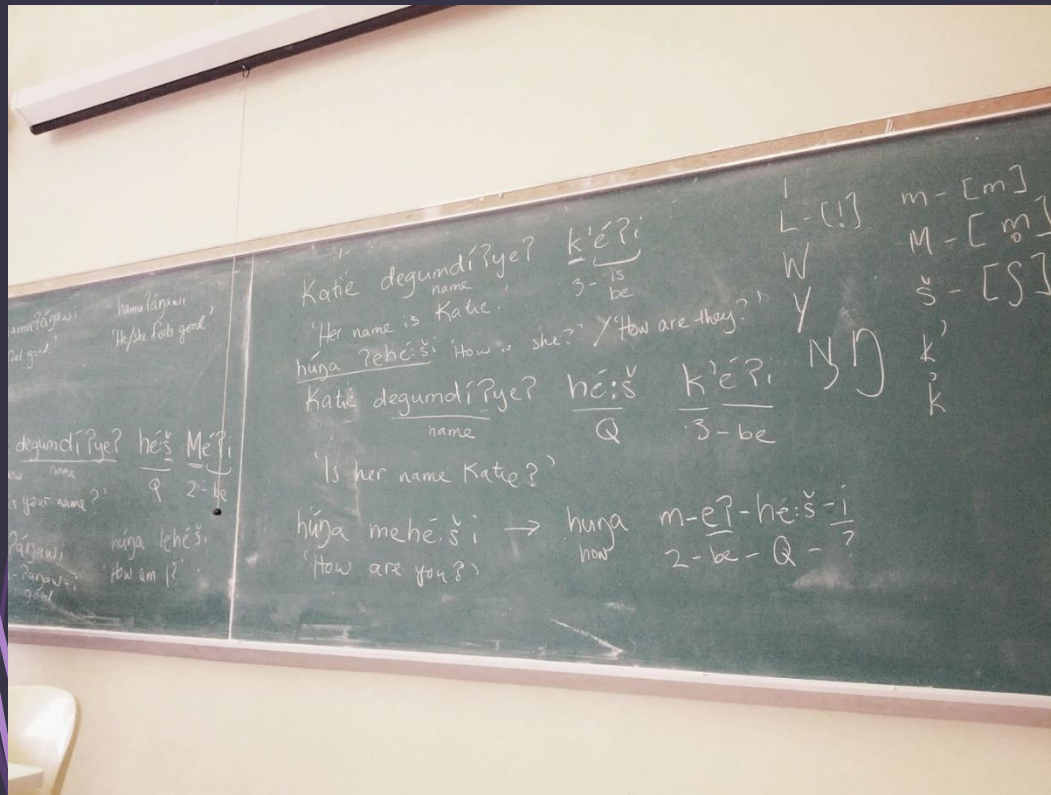 hamuʔáŋawi
'He/she feels good'
degumdíʔyeʔ hé:š Mé:ʔi
name Q 2-be
is your name?'
ʔáŋawi húŋa lehéši
-ʔáŋaw-i 'How am I?'
good
Katie degumdíʔyeʔ k'éʔi
name 3- is
be
'Her name is Katie.'
húŋa ʔehé:ši 'How is she?' / 'How are they?'
Katie degumdíʔyeʔ hé:š k'éʔi
name Q 3-be
'Is her name Katie?'
húŋa mehé:ši → huŋa m-eʔ-hé:š-i
'How are you?' how 2-be-Q-?
l
L-[l̥]
W
Y
Ŋ ŋ
m-[m]
M-[m̥]
š-[ʃ]
k'
k̓